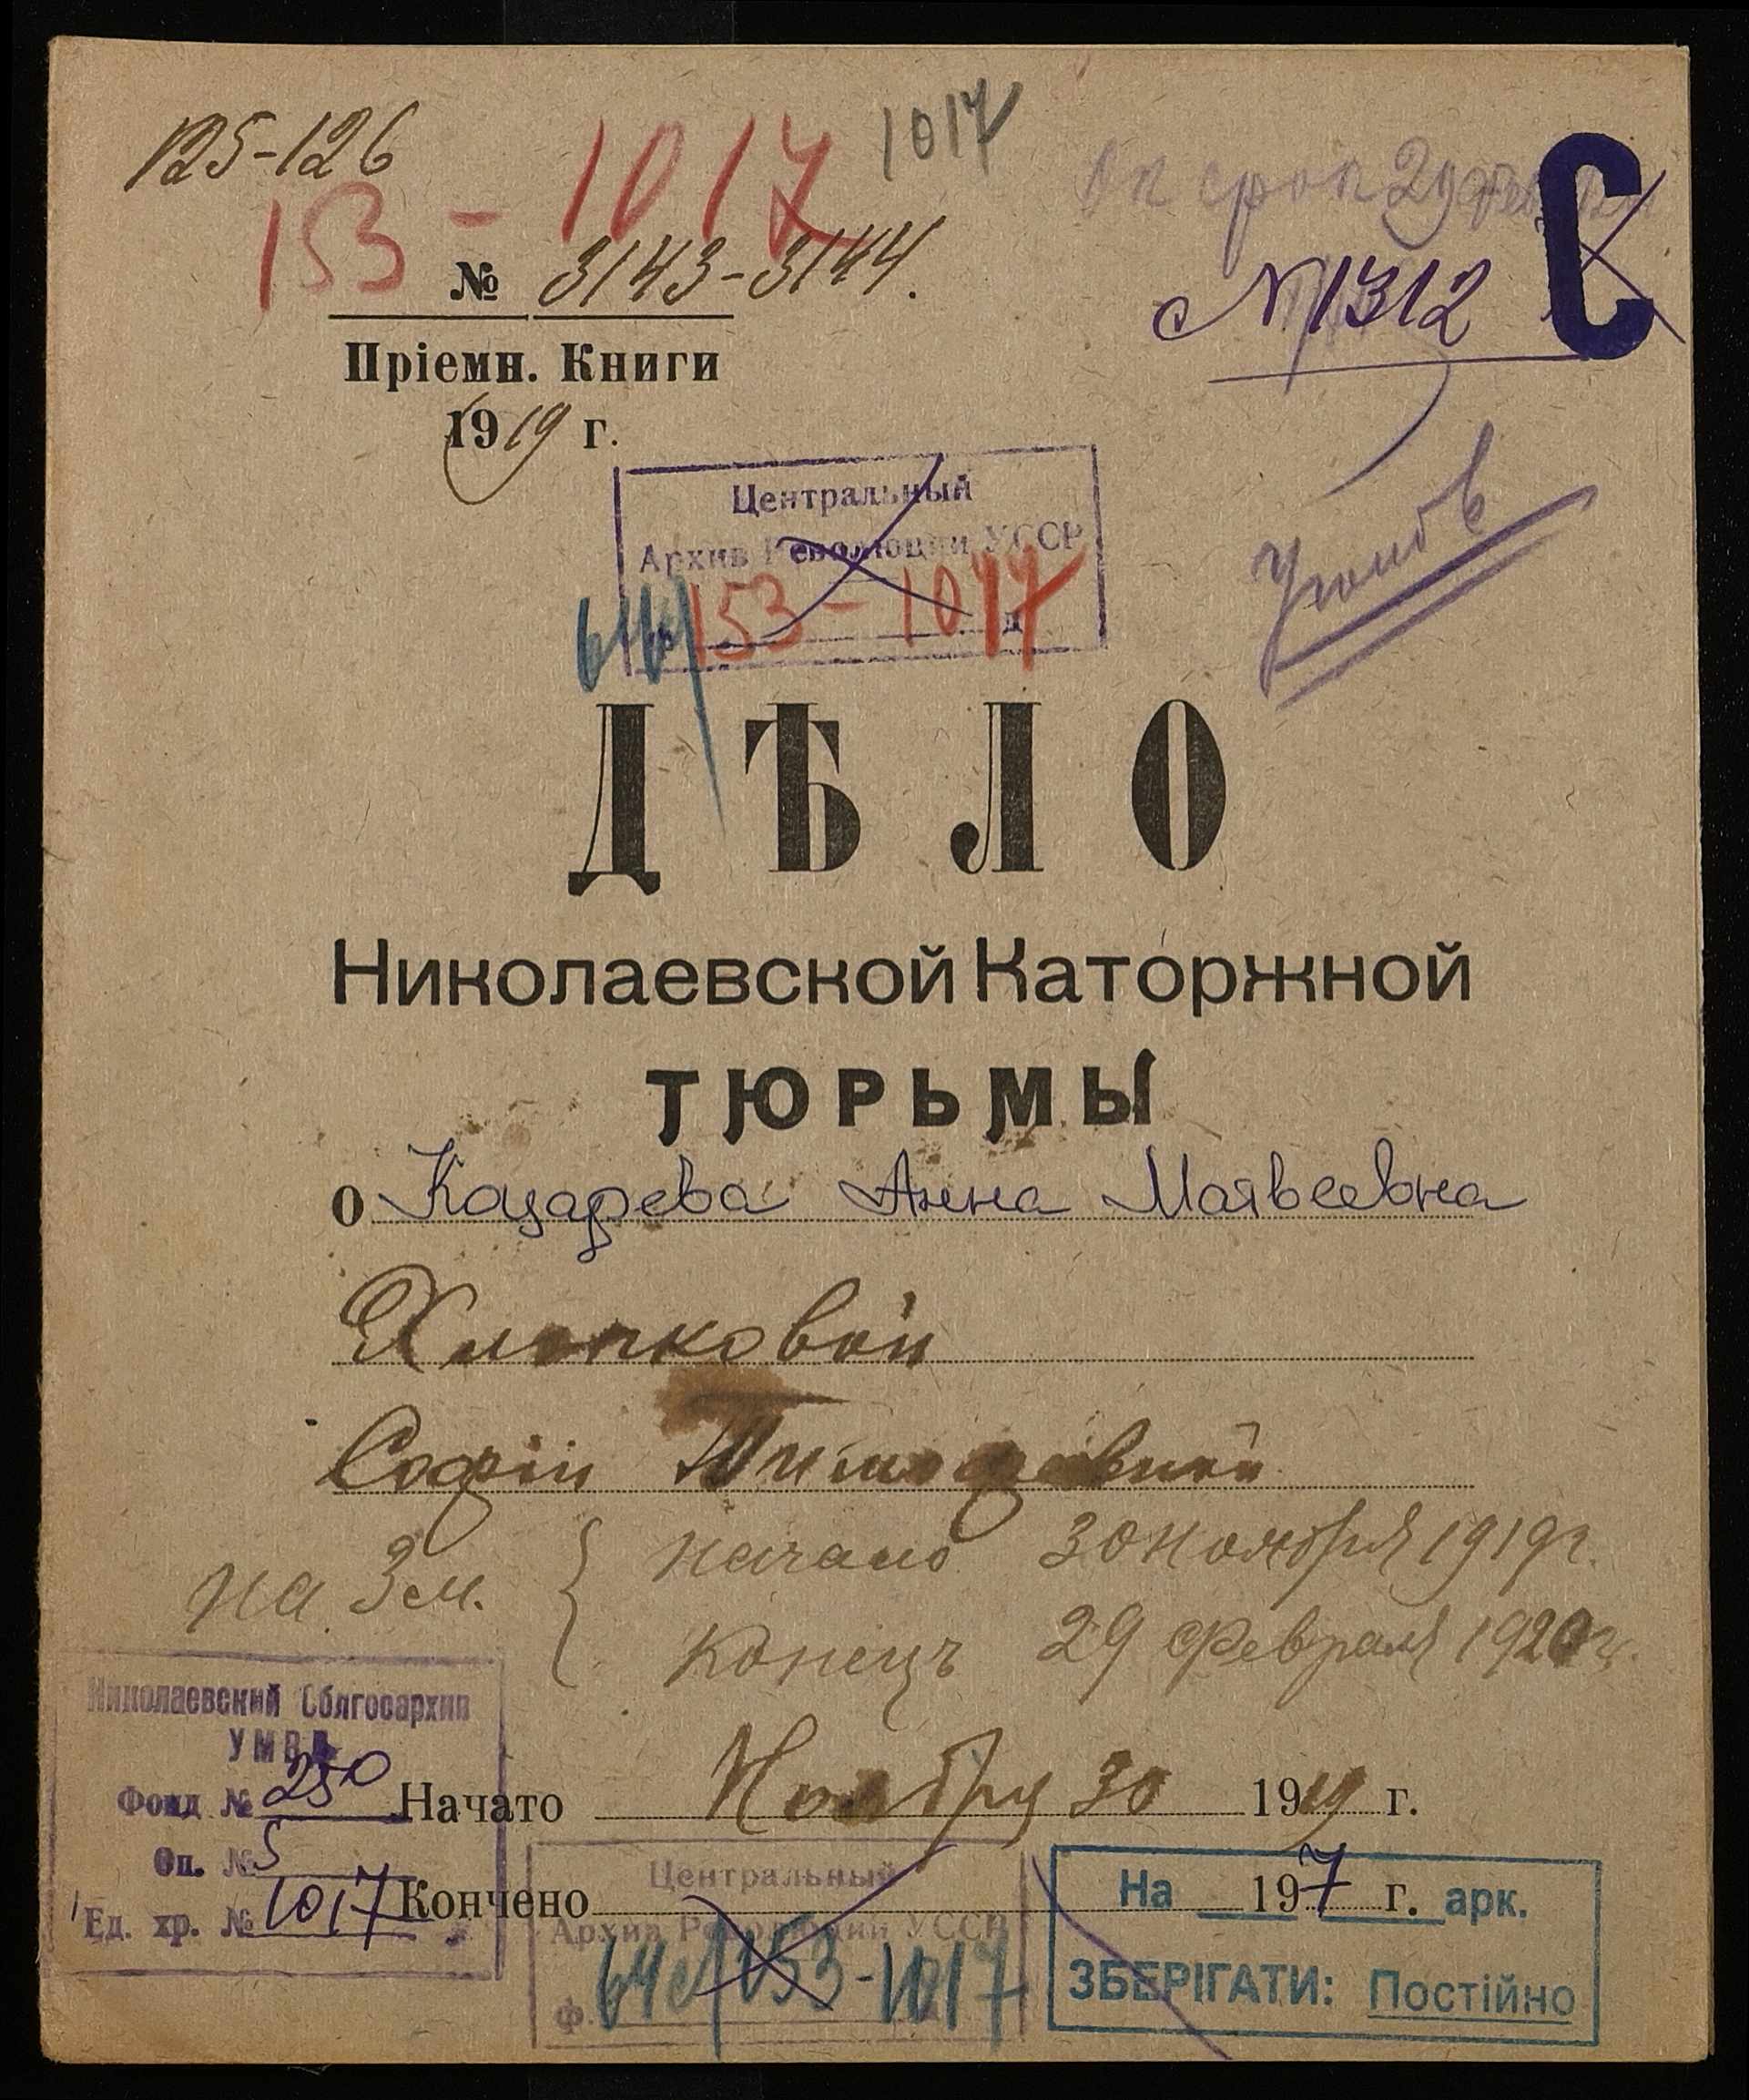 125-126
153-1017
1017
№ 3143-3144.
Пріемн. Книги
1919 г.
срок 29
С
№1312
Центральный
Архив Революции УССР
153-1017
ДѢЛО
Николаевской Каторжной
ТЮРЬМЫ
о Казарева Анна Матвеевна
Хлопковой
Софіи Тимофеевной
на 3 м. { начало 30 ноября 1919 г.
конецъ 29 февраля 1920 г.
Николаевский Облгосархив
УМВД
Фонд № 250
Оп. № 5
Ед. хр. № 1017
Начато Ноября 30 1919 г.
Кончено 19 г.
Центральный
Архив Революции УССР
ф. 64с/153-1017
На 7 арк.
ЗБЕРІГАТИ: Постійно